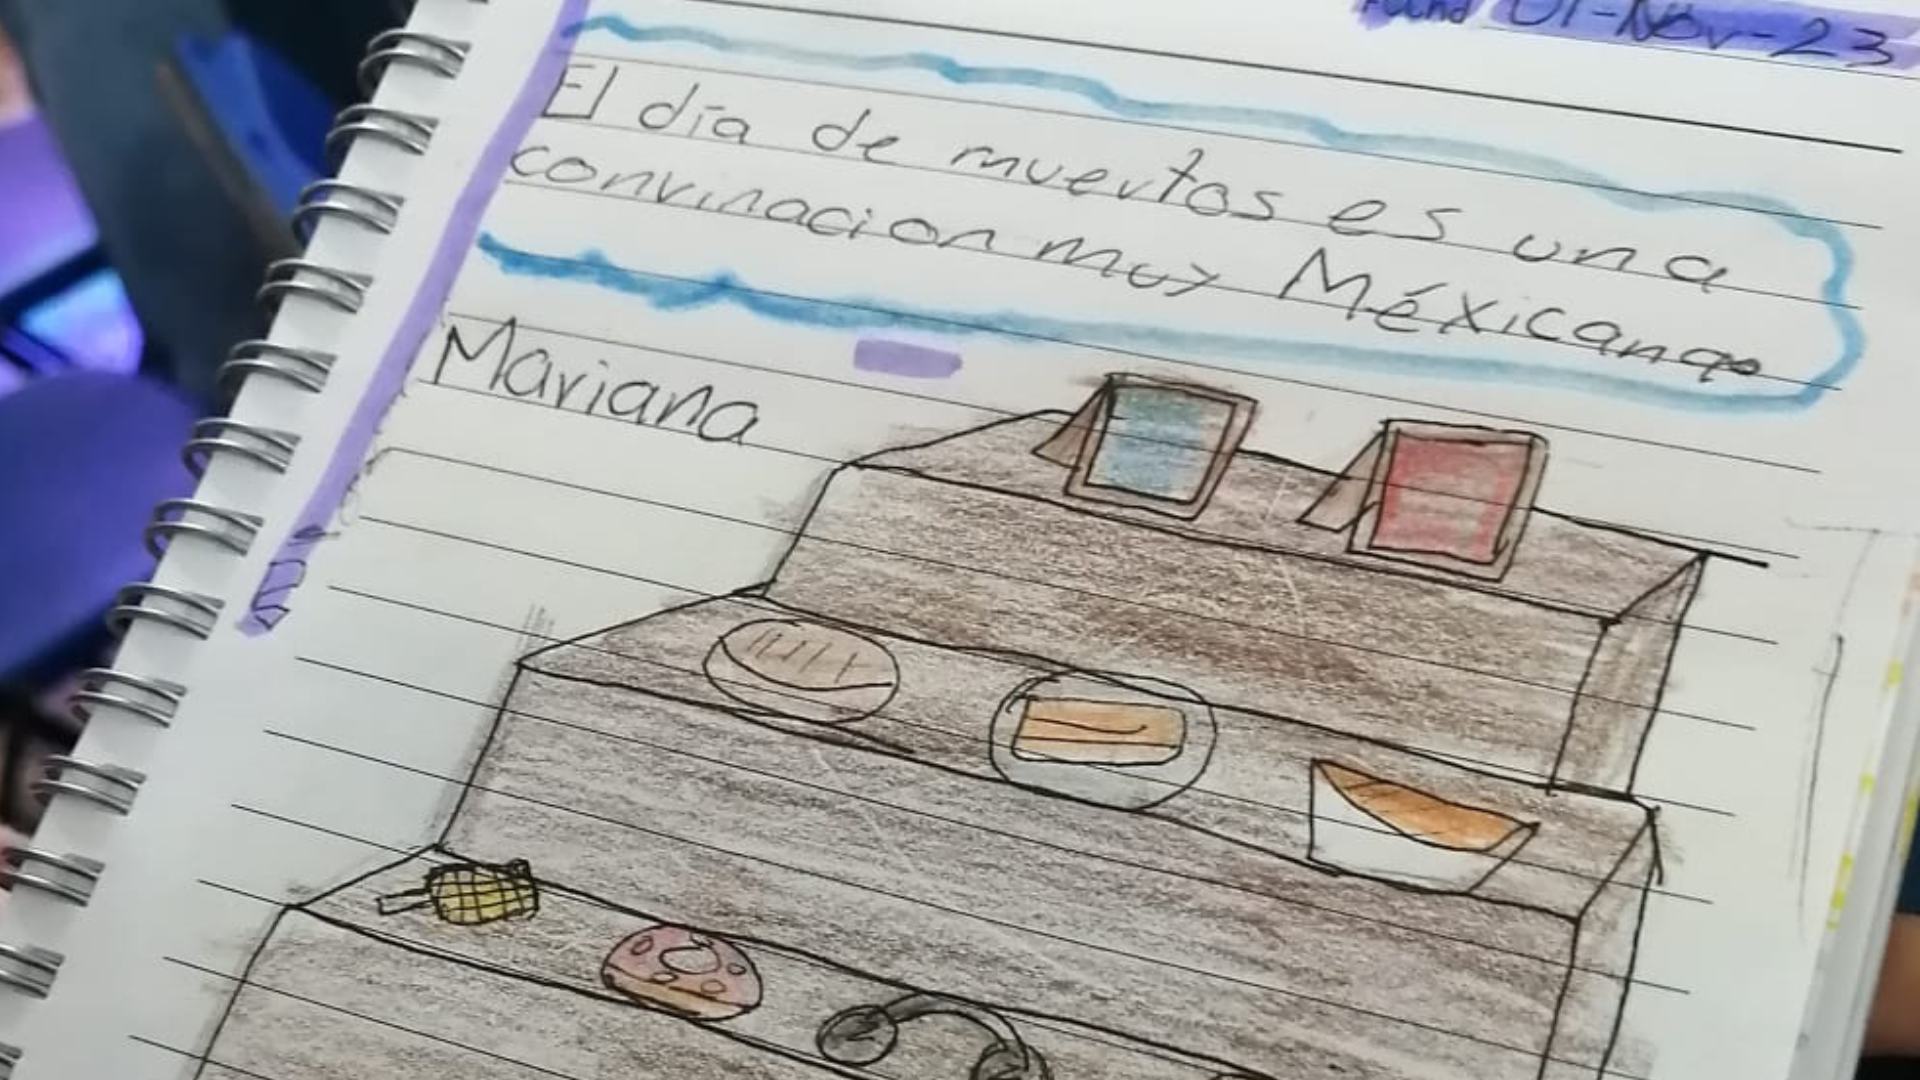 Fecha 01-Nov-23
El día de muertos es una
convinacion muy Méxicana
Mariana